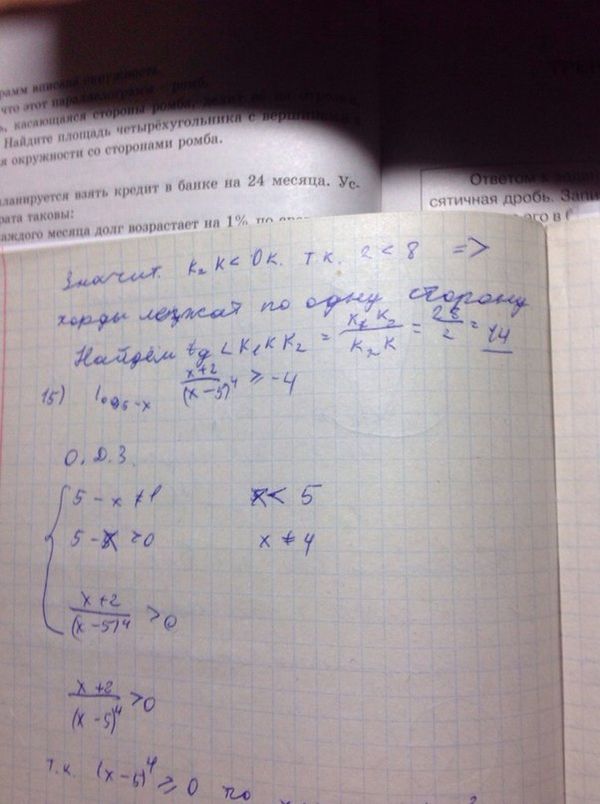 что этот параллелограмм – ромб.
касающаяся стороны ромба, делит
Найдите площадь четырёхугольника с вершинами
окружности со сторонами ромба.
планируется взять кредит в банке на 24 месяца. Ус-
таковы:
каждого месяца долг возрастает на 1% по
Ответом к
сятичная дробь. Запи
его в
Значит K₂K < OK. т.к. 2 < 8 =>
хорды лежат по одну сторону
Найдём tg ∠K₁KK₂ = K₁K₂/K₂K = 28/2 = 14
15) log₅₋ₓ (x+2)/(x-5)⁴ ≥ -4
О.Д.З.
5 - x ≠ 1 x < 5
5 - x > 0 x ≠ 4
(x+2)/(x-5)⁴ > 0
(x+2)/(x-5)⁴ > 0
т.к. (x-5)⁴ ≥ 0 по